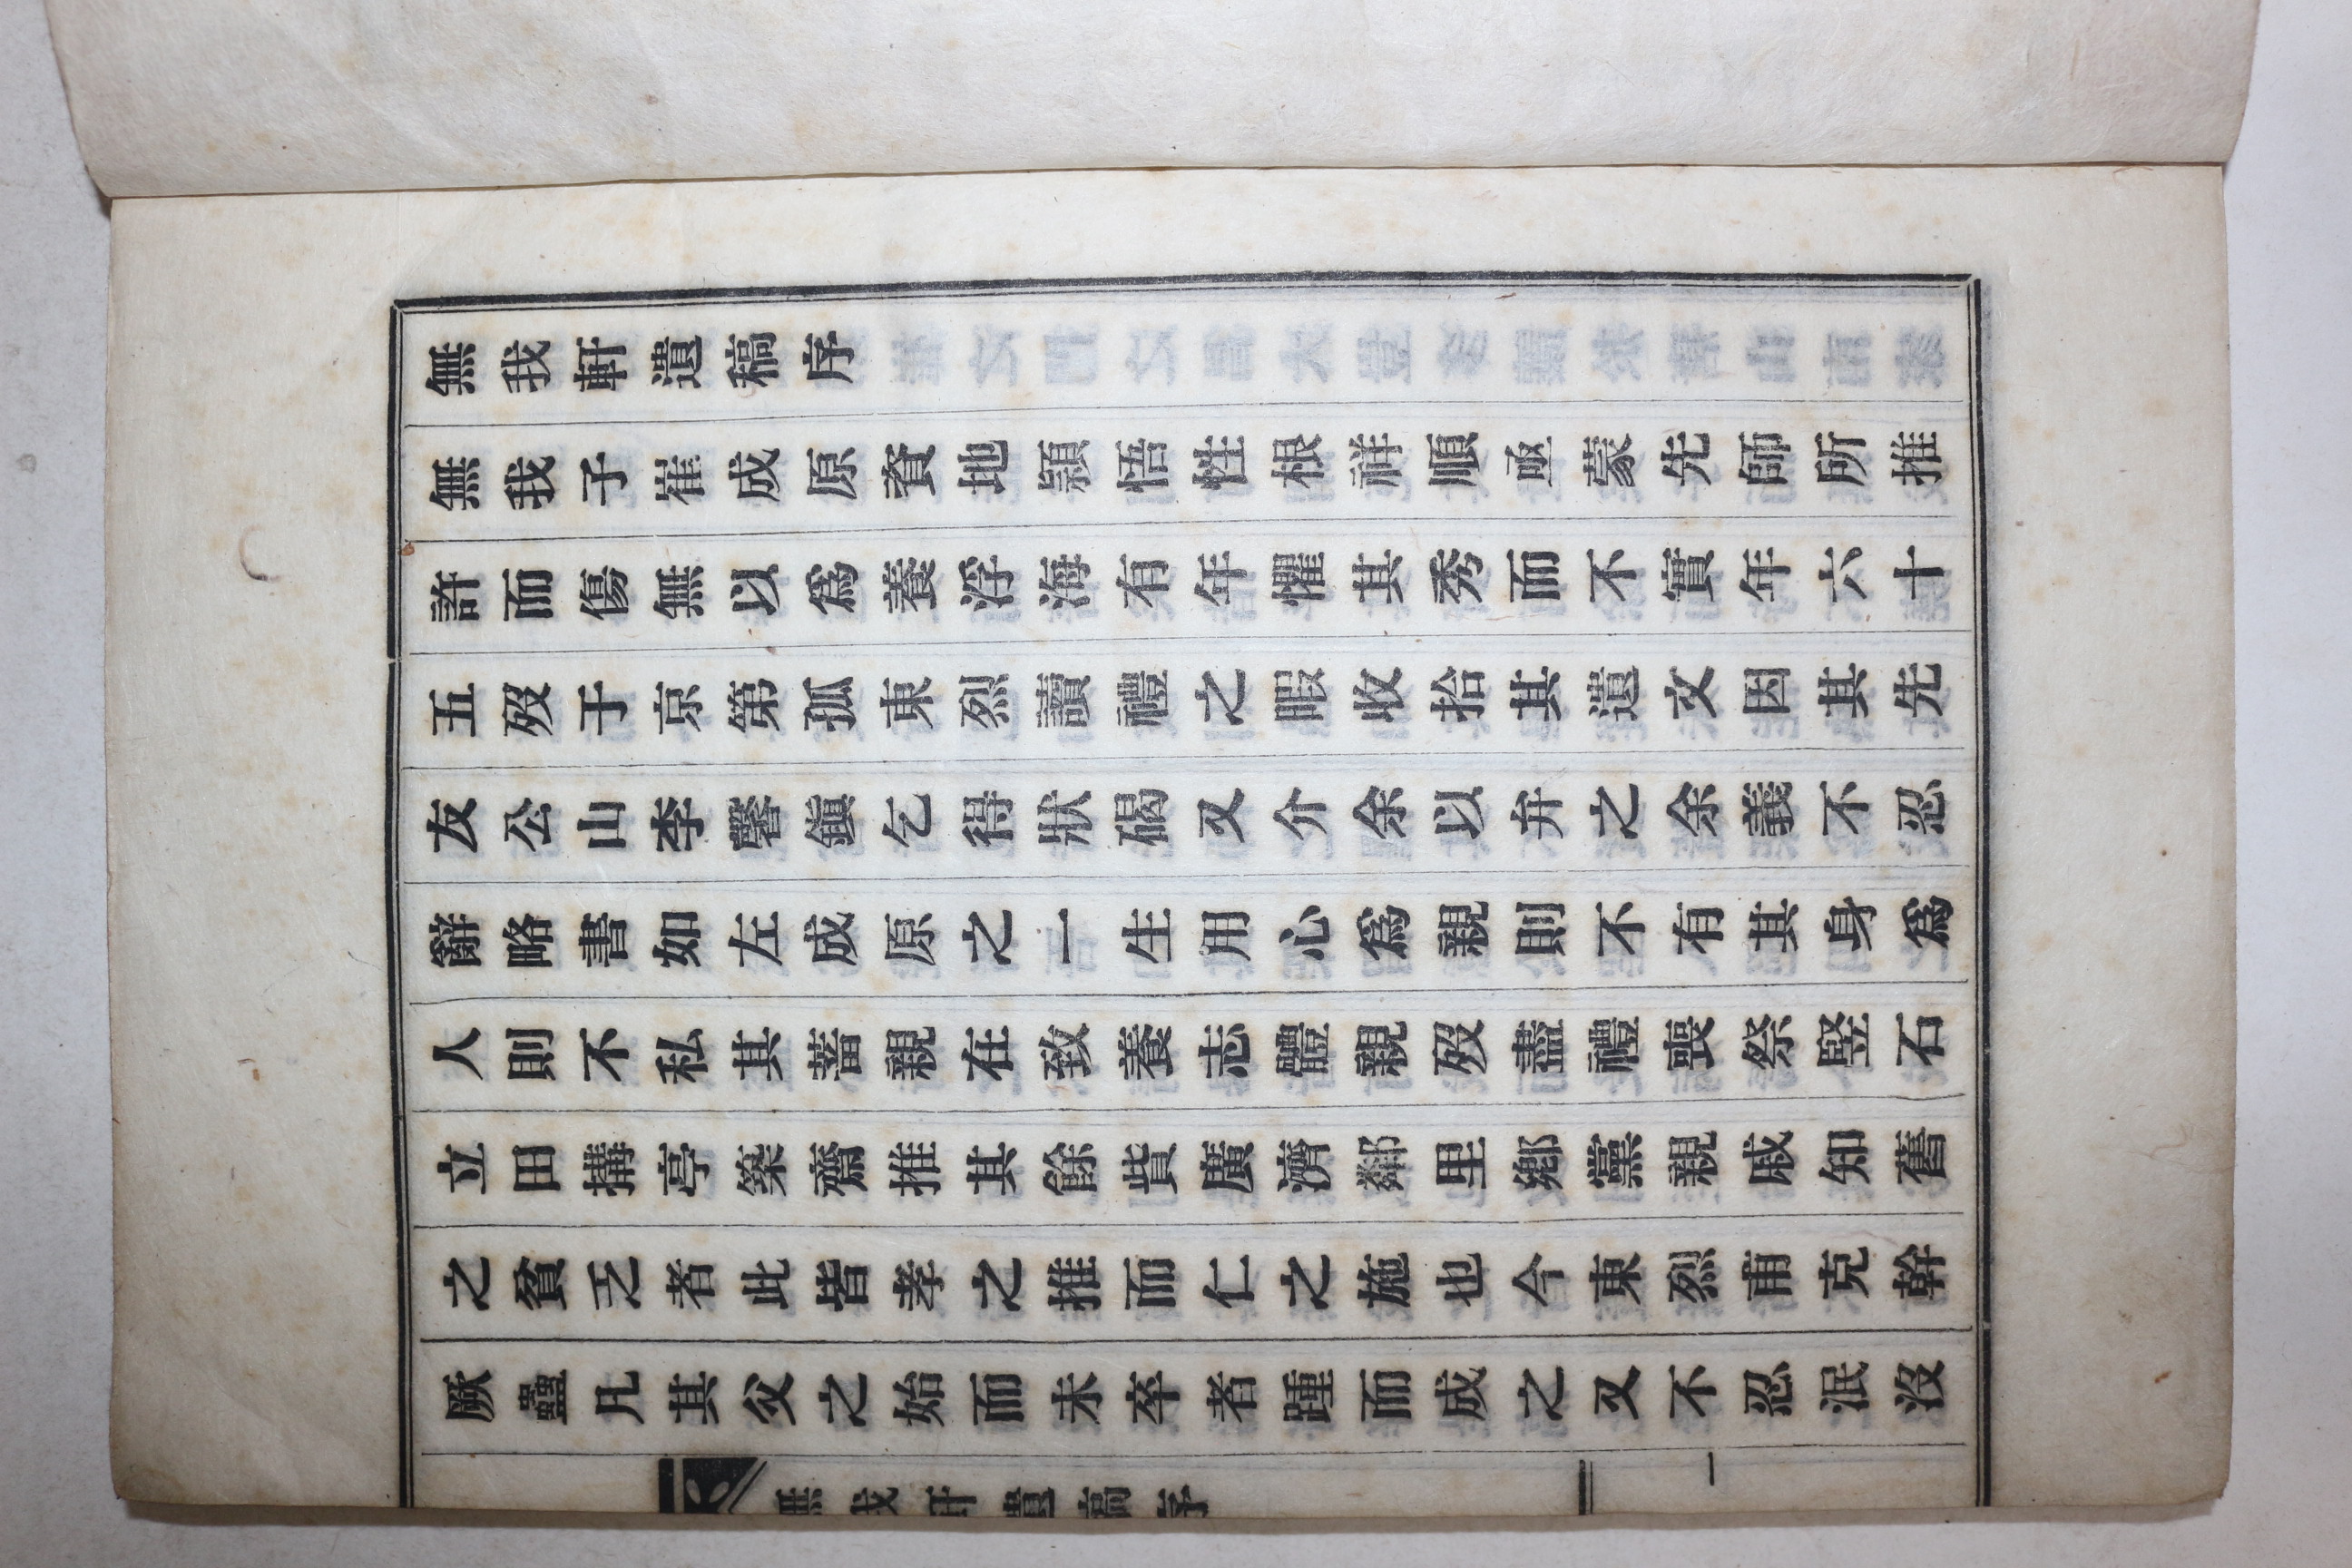 無我軒遺稿序
無我子崔成原資地頴悟性根祥順亟蒙先師所推
許而傷無以爲養浮海有年懼其秀而不實年六十
五歿于京第孤東烈讀禮之暇收拾其遺文因其先
友公山李馨鎭乞得狀碣又介余以弁之余義不忍
辭略書如左成原之一生用心爲親則不有其身爲
人則不私其蓄親在致養志體親歿盡禮喪祭竪石
立田搆亭築齋推其餘貲廣濟鄰里鄉黨親戚知舊
之貧乏者此皆孝之推而仁之施也今東烈甫克幹
厥蠱凡其父之始而未卒者踵而成之又不忍泯沒
無我軒遺稿序
一